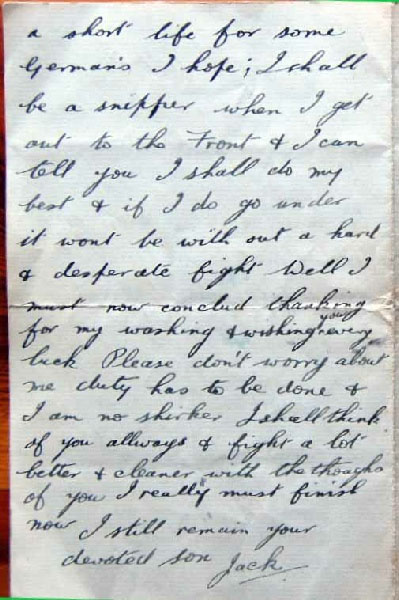 a short life for some
Germans I hope; I shall
be a snipper when I get
out to the Front & I can
tell you I shall do my
best & if I do go under
it wont be with out a hard
& desperate fight Well I
must now conclud thanking
for my washing & wishing you every
luck Please don't worry about
me duty has to be done &
I am no shirker I shall think
of you allways & fight a lot
better & cleaner with the thoughs
of you I really must finish
now I still remain your
devoted son Jack